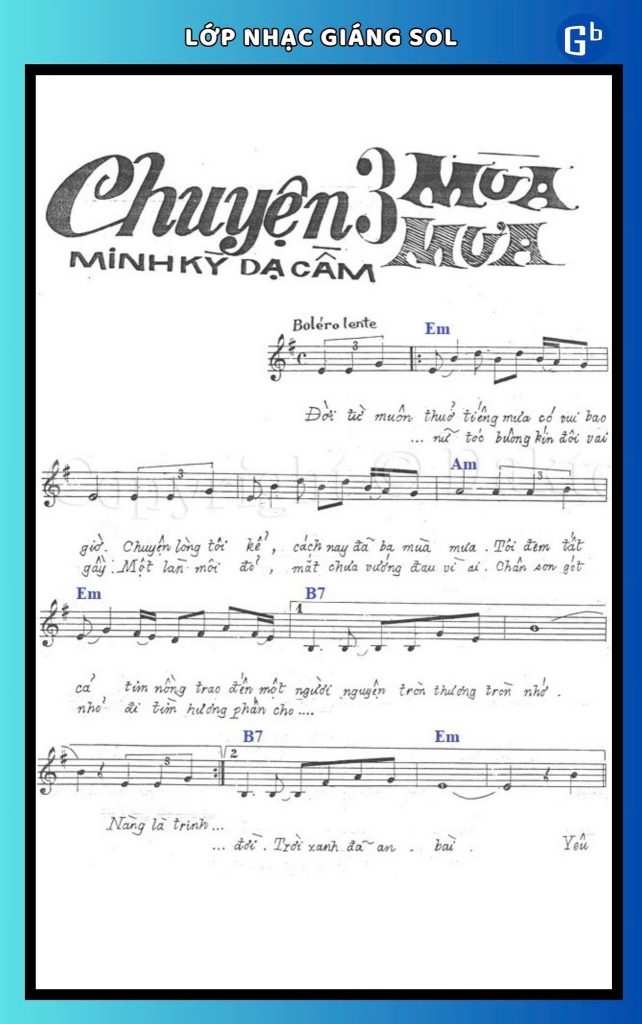 LỚP NHẠC GIÁNG SOL
Gb
Chuyện 3 MÙA MƯA
MINH KỲ DẠ CẦM
Boléro lente
Em
3
Đời từ muôn thuở tiếng mưa có vui bao
... nữ tóc buông kín đôi vai
Am
3 3
giờ. Chuyện lòng tôi kể, cách nay đã ba mùa mưa. Tôi đem tất
gầy. Một lần môi đỏ, mắt chưa vướng đau vì ai. Chân son gót
Em B7
1
cả tim nồng trao đến một người nguyện tròn thương tròn nhớ.
nhỏ đi tìm hương phấn cho....
B7 Em
3 2
Nàng là trinh...
... đời. Trời xanh đã an - bài. Yêu